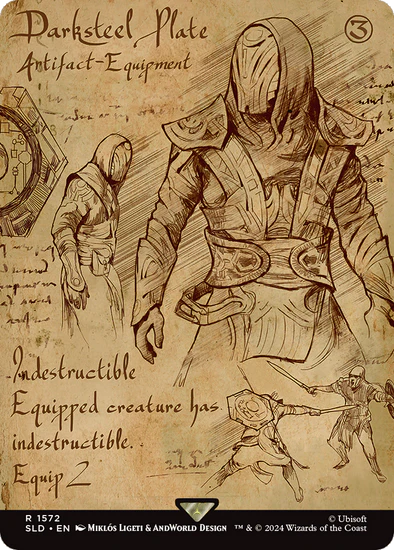 Darksteel Plate
3
Artifact-Equipment
Indestructible
Equipped creature has
indestructible.
Equip 2
R 1572
SLD • EN Miklós Ligeti & AndWorld Design
© Ubisoft
™ & © 2024 Wizards of the Coast